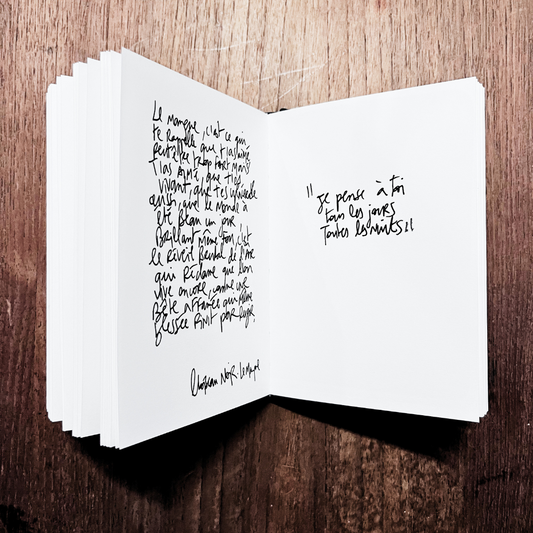 Le manque, c'est ce qui
te rappelle que t'as aimé
peut-être trop fort mais
t'as aimé, que t'es
vivant, que t'es vulnérable
aussi, que le monde a
été beau un jour
Brillant même fou, c'est
le réveil brutal de l'âme
qui réclame que l'on
vive encore, comme une
Bête affamée qui même
blessée finit par rugir.
Chapeau Noir. Le manque
"Je pense à toi
tous les jours
Toutes les nuits"